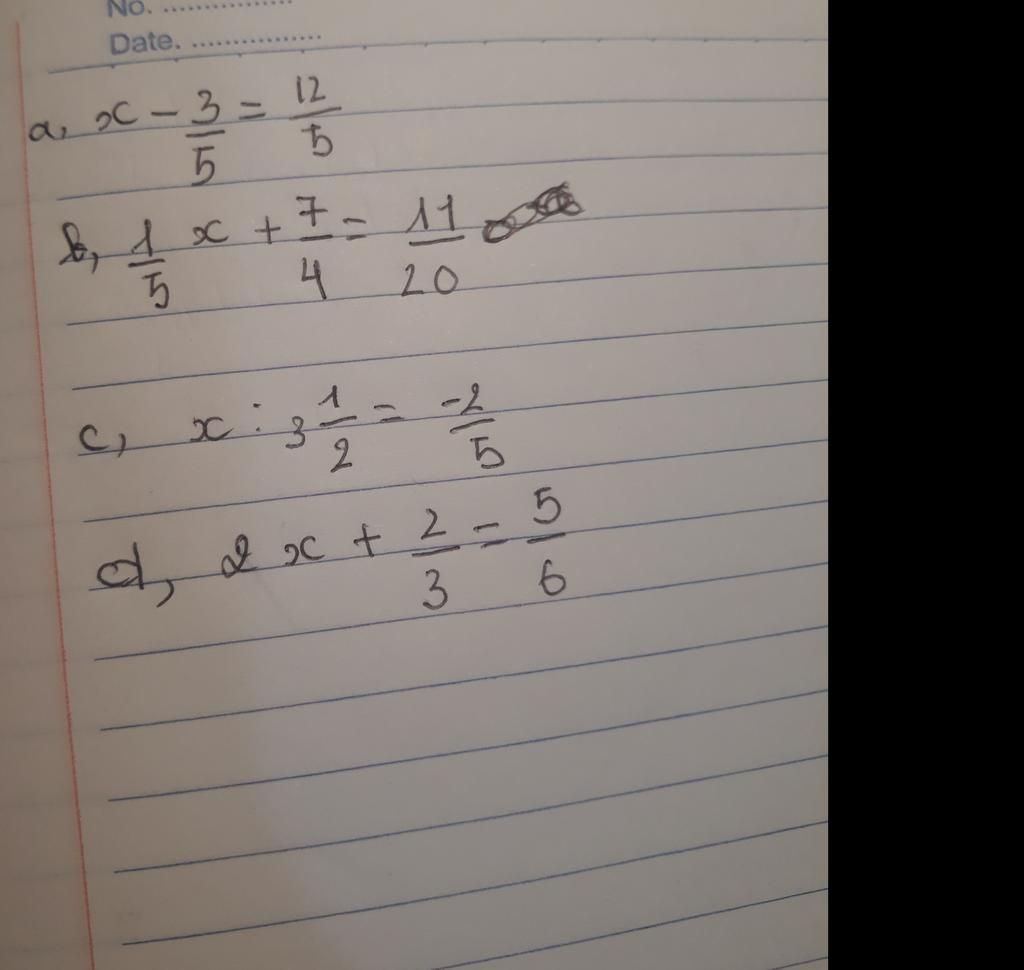 No. ...............
Date. ...............
a, x - 3/5 = 12/5
b, 1/5 x + 7/4 = 11/20
c, x : 3 1/2 = -2/5
d, 2x + 2/3 = 5/6